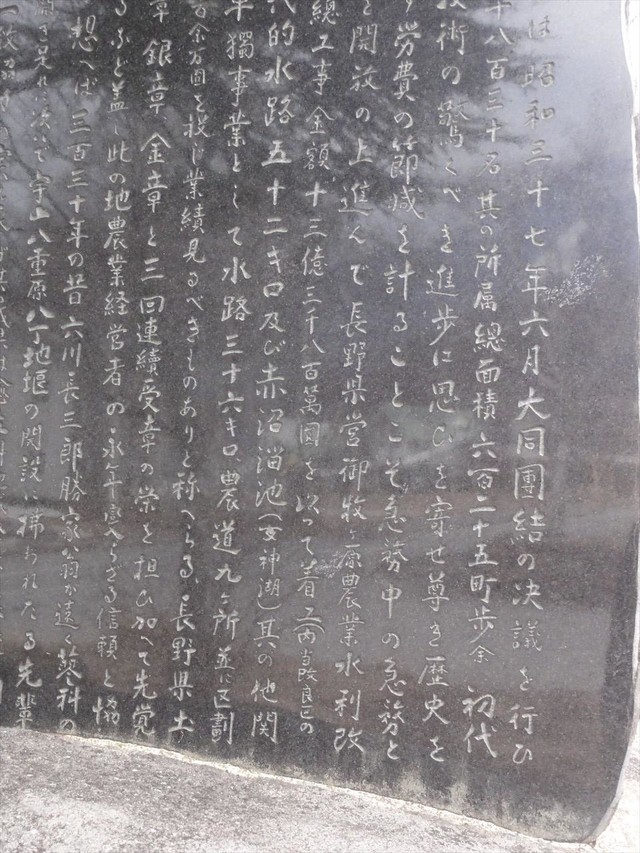 は昭和三十七年六月大同團結の決議を行ひ
十八百三十名其の所属總面積六百二十五町歩余初代
技術の驚くべき進歩に思ひを寄せ尊き歴史を
労費の節減を計ることこそ急務中の急務と
を開放の上進んで長野県営御牧ヶ原農業水利改
總工事金額十三億三千八百萬圓を以って着工(内当改良区の
代的水路五十二キロ及び赤沼溜池(女神湖)其の他関
独事業として水路三十六キロ農道九ヶ所並に区劃
余万圓を投じ業績見るべきものありと称へらる、長野県土
章銀章金章と三回連續受章の栄を担ひ加へて先覚
るふと蓋し此の地農業経営者の永年変へらざる信頼と協
想へば三百三十年の昔六川長三郎勝家翁が遠く蓼科の
次いで宇山八重原八丁地堰の開設に拂われたる先輩